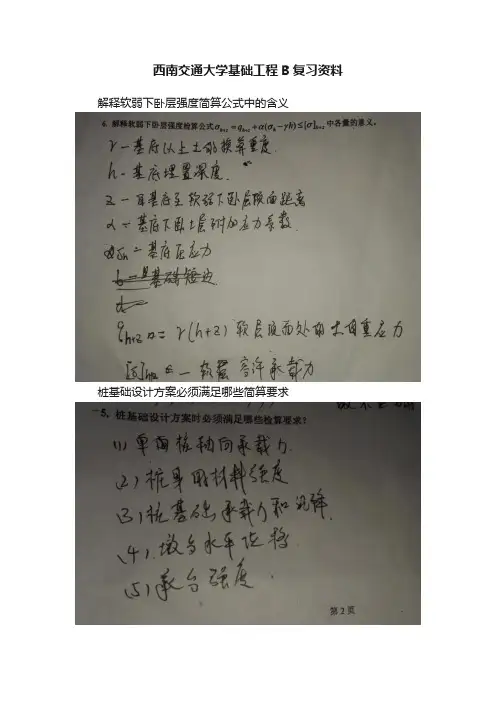 西南交通大学基础工程B复习资料
解释软弱下卧层强度简算公式中的含义
4. 解释软弱下卧层强度检算公式σh+z = qh+z + α(σh − γh) ≤ [σ]h+z 中各量的意义。
γ—基底以上土的换算重度.
h—基底埋置深度.
z—自基底至软弱下卧层顶面距离
α—基底下卧土层附加应力系数.
σh = 基底压应力
b—基础短边
qh+z = γ(h+z) 软层顶面处的土自重应力
[σ]h+z — 软层容许承载力
桩基础设计方案必须满足哪些简算要求
5. 桩基础设计方案时必须满足哪些检算要求?
(1) 单面桩轴向承载力.
(2) 桩身的材料强度
(3) 桩基础承载力和沉降.
(4). 墩台水平位移.
(5) 承台强度.
第2页